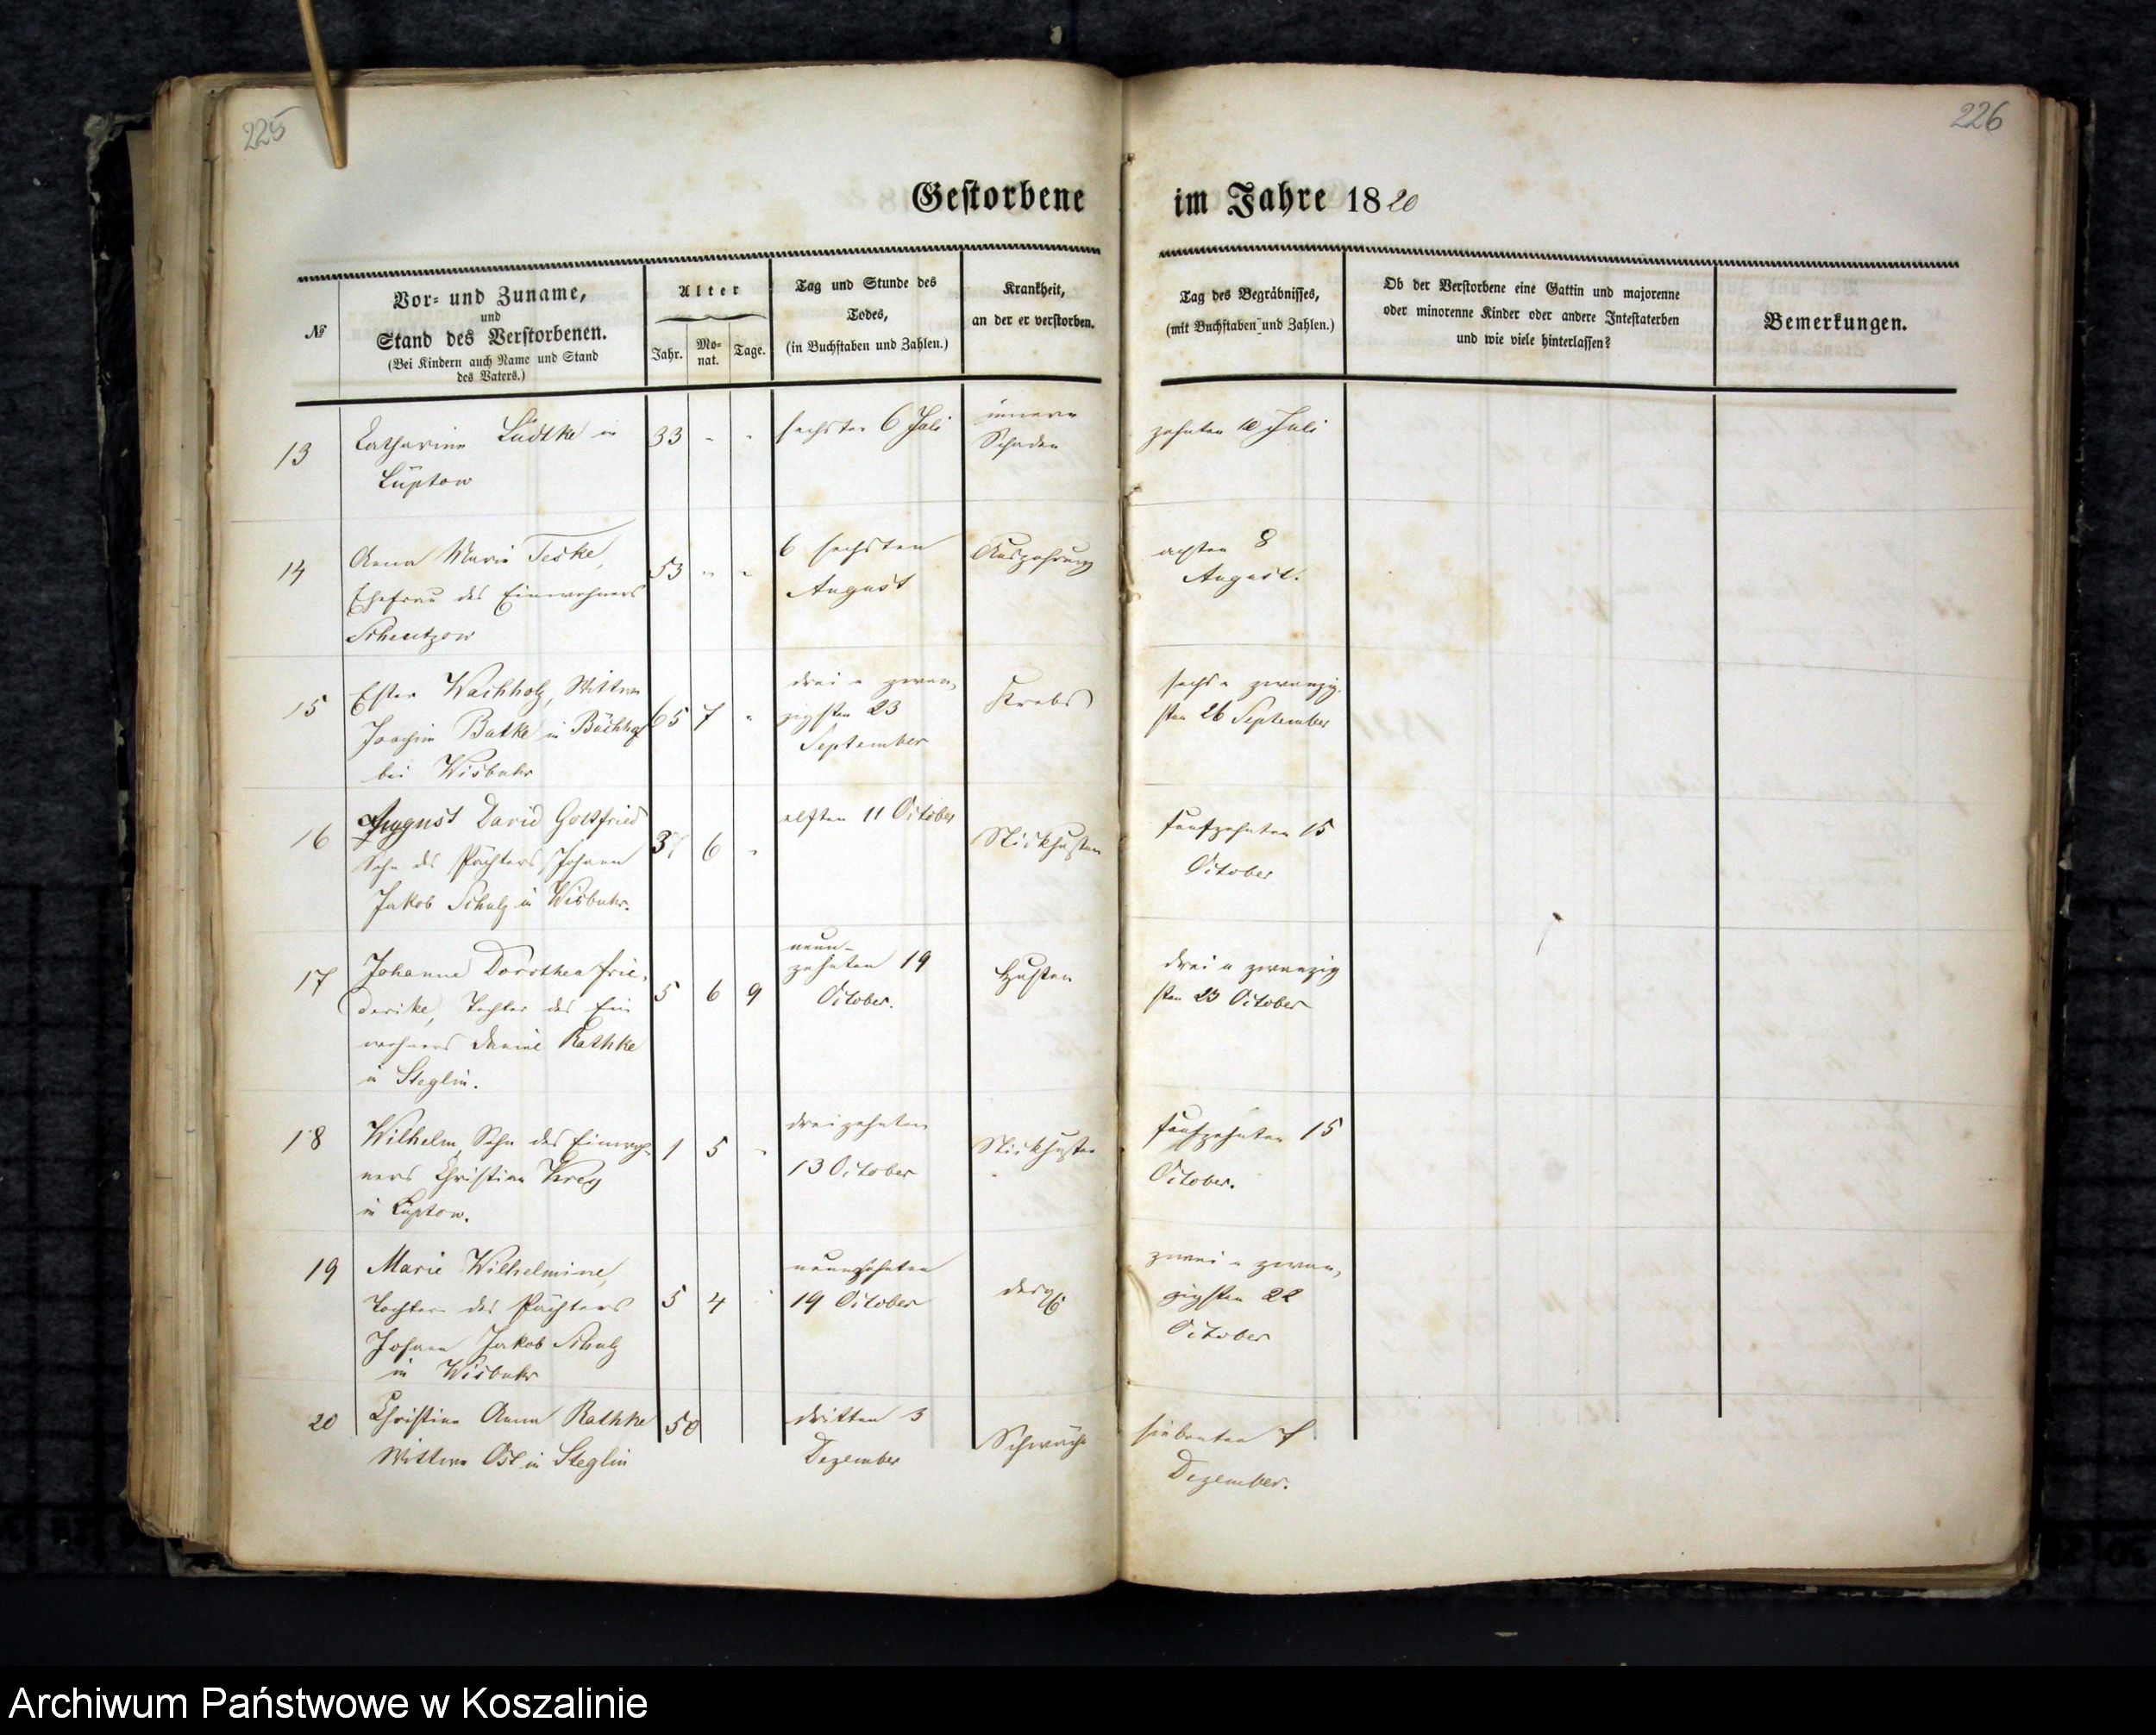 225
226
Gestorbene im Jahre 1820
№
Vor- und Zuname,
und
Stand des Verstorbenen.
(Bei Kindern auch Name und Stand
des Vaters.)
Alter
Jahr.
Mo-
nat.
Tage.
Tag und Stunde des
Todes,
(in Buchstaben und Zahlen.)
Krankheit,
an der er verstorben.
Tag des Begräbnisses,
(mit Buchstaben und Zahlen.)
Ob der Verstorbene eine Gattin und majorenne
oder minorenne Kinder oder andere Intestaterben
und wie viele hinterlassen?
Bemerkungen.
13
Catharine Lüdtke in
Lüptow
33 " "
sechsten 6 Juli
innere
Schaden
zehnten 10 Juli
14
Anna Marie Teske,
Ehefrau des Einwohners
Scheutzow
53 " "
6 sechsten
August
Auszehrung
achten 8
August.
15
Ester Wachholz, Wittwe
Joachim Batke in
bei Wisbuhr
65 7 "
drei u zwan,
zigsten 23
September
Krebs
sechs u zwanzig.
sten 26 September
16
August David Gottfried
Sohn des Pächters Johann
Jakob Schulz in Wisbuhr.
6 "
elften 11 October
Stickhusten
fünfzehnten 15
October
17
Johanne Dorothea Frie,
derike, Tochter des Ein
wohners Daniel Rathke
in Steglin.
5 6 9
neun-
zehnten 19
October.
Husten
drei u zwanzig
sten 23 October
18
Wilhelm, Sohn des Einwoh-
ners Christian
in Lüptow.
1 5 "
dreizehnten
13 October
Stickhusten
fünfzehnten 15
October.
19
Marie Wilhelmine,
Tochter des Pächters
Johann Jakob Schulz
in Wisbuhr
5 4
neunzehnten
19 October
desgl
zwei u zwan,
zigsten 22
October
20
Christine Anna Rathke
Wittwe Ost in Steglin
50
dritten 3
Dezember
Schwäche
siebenten 7
Dezember.
Archiwum Państwowe w Koszalinie